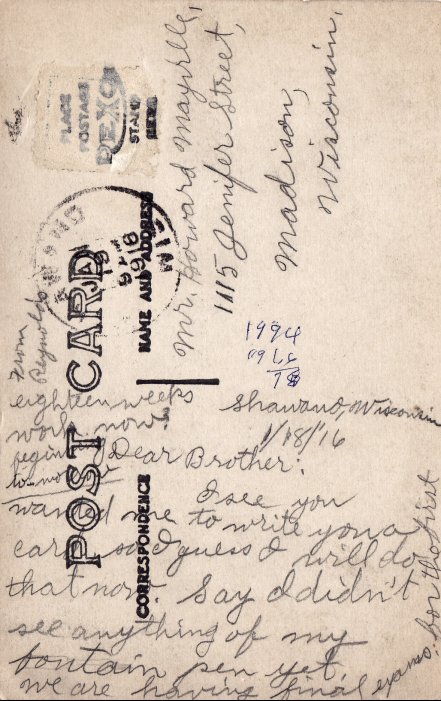 PLACE
POSTAGE
STAMP
HERE
POST CARD
NAME AND ADDRESS
CORRESPONDENCE
Mr. Howard Mayville,
1115 Jenifer Street,
Madison,
Wisconsin.
1994
1916
78
Shawano, Wisconsin
1/18/'16
Dear Brother:
I see you
wanted me to write you a
card so I guess I will do
that now. Say I didn't
see anything of my
fountain pen yet.
We are having final exams. for the first
eighteen weeks
work now.
begins
to-morrow
From
Reynolds